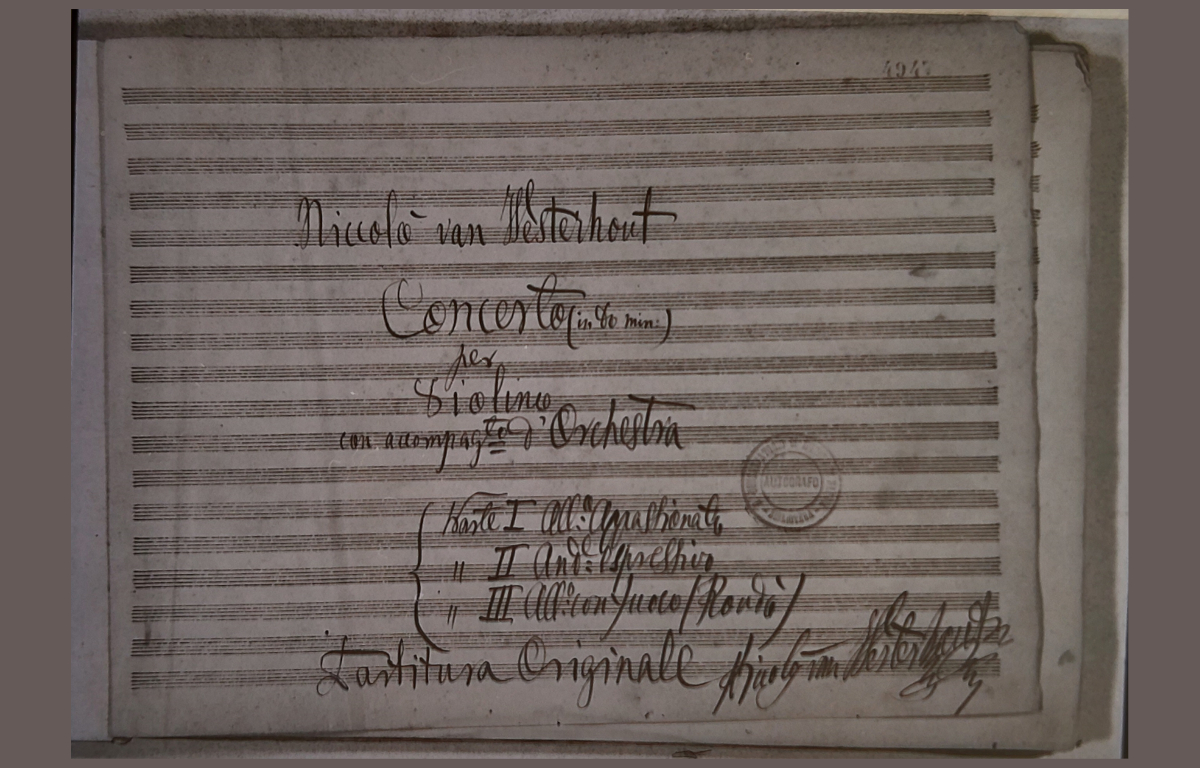 4947
Niccolò van Westerhout
Concerto (in Do min:)
per
Violino
con accompag.to d'Orchestra
Parte I All:o Appassionato
" II And:e Espressivo
" III All:o con fuoco (Rondò)
Partitura Originale Niccolò van Westerhout
AUTOGRAFO